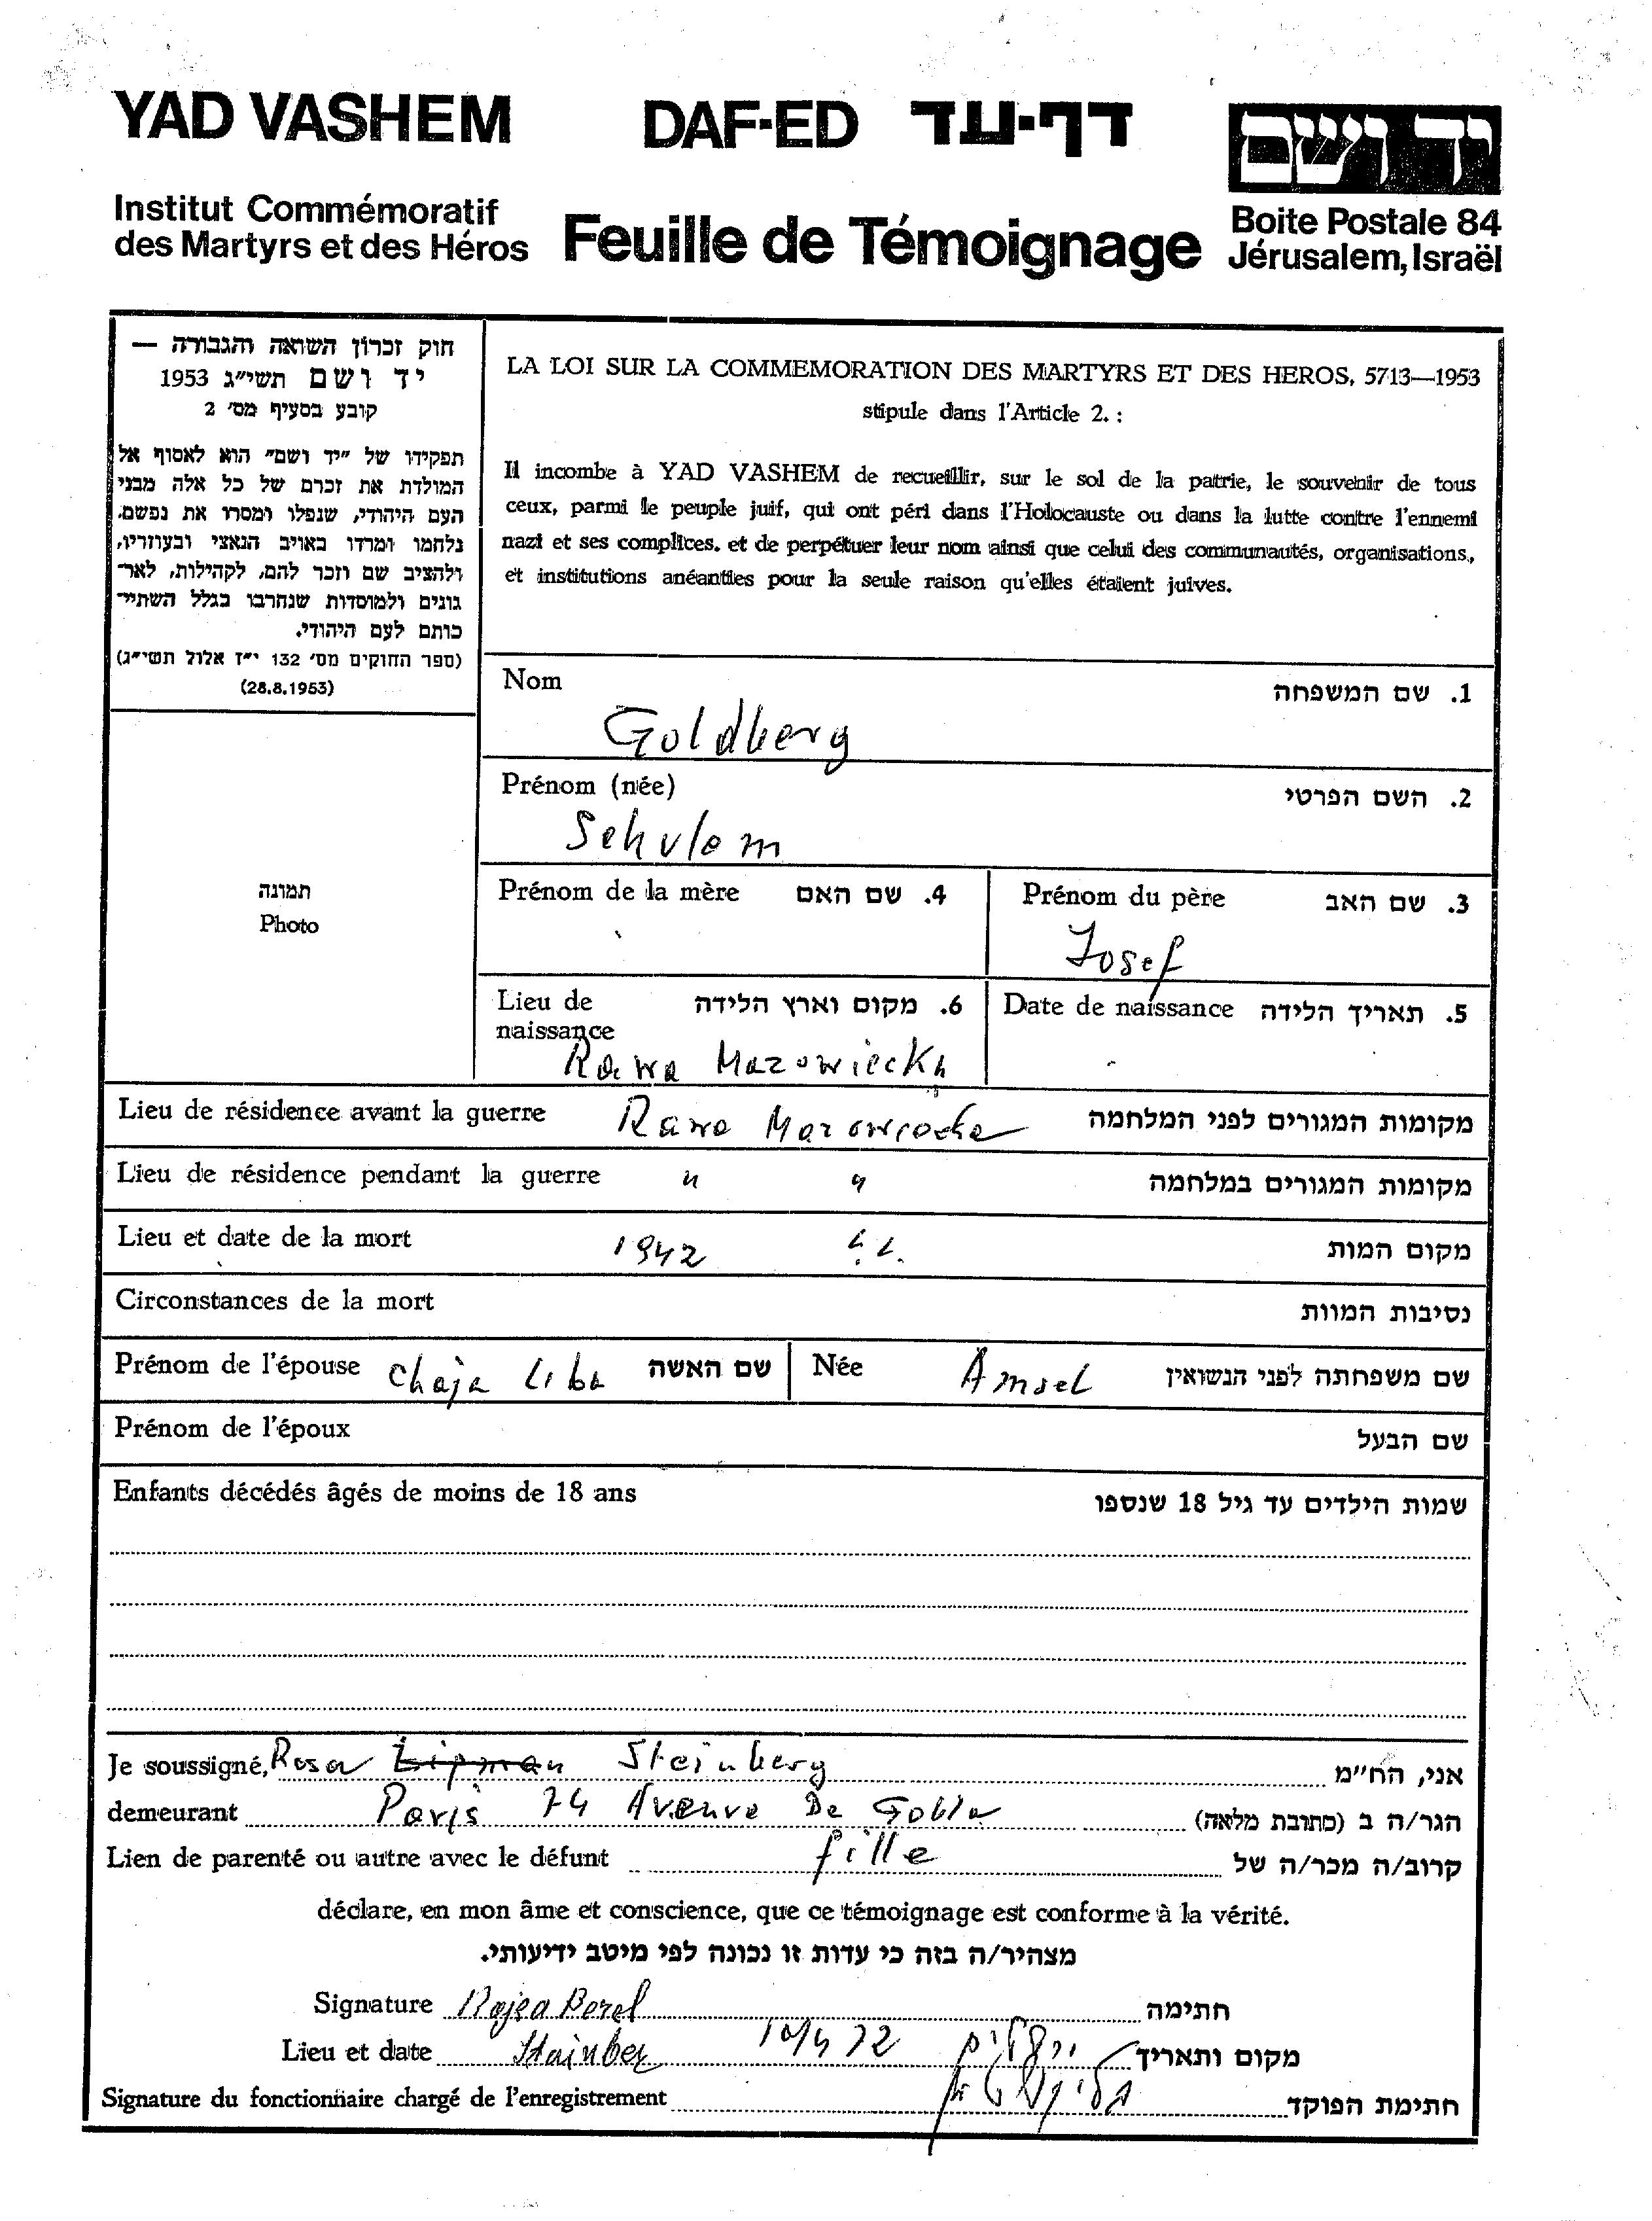 YAD VASHEM DAF-ED דף-עד יד ושם
Institut Commémoratif
des Martyrs et des Héros
Feuille de Témoignage
Boite Postale 84
Jérusalem, Israël
חוק זכרון השואה והגבורה —
יד ושם תשי״ג 1953
קובע בסעיף מס׳ 2
תפקידו של ״יד ושם״ הוא לאסוף אל
המולדת את זכרם של כל אלה מבני
העם היהודי, שנפלו ומסרו את נפשם,
נלחמו ומרדו באויב הנאצי ובעוזריו,
ולהציב שם וזכר להם, לקהילות, לאר־
גונים ולמוסדות שנחרבו בגלל השתיי־
כותם לעם היהודי.
(ספר החוקים מס׳ 132 י״ז אלול תשי״ג)
(28.8.1953)
LA LOI SUR LA COMMEMORATION DES MARTYRS ET DES HEROS, 5713—1953
stipule dans l'Article 2. :
Il incombe à YAD VASHEM de recueillir, sur le sol de la patrie, le souvenir de tous
ceux, parmi le peuple juif, qui ont péri dans l'Holocauste ou dans la lutte contre l'ennemi
nazi et ses complices, et de perpétuer leur nom ainsi que celui des communautés, organisations,
et institutions anéanties pour la seule raison qu'elles étaient juives.
תמונה
Photo
Nom 1. שם המשפחה
Goldberg
Prénom (née) 2. השם הפרטי
Schulem
Prénom de la mère 4. שם האם
Prénom du père 3. שם האב
Josef
Lieu de 6. מקום וארץ הלידה
naissance
Rawa Mazowiecka
Date de naissance 5. תאריך הלידה
Lieu de résidence avant la guerre Rawa Mazowiecka מקומות המגורים לפני המלחמה
Lieu de résidence pendant la guerre " " מקומות המגורים במלחמה
Lieu et date de la mort 1942 מקום המות
Circonstances de la mort נסיבות המוות
Prénom de l'épouse Chaja Liba שם האשה Née Amsel שם משפחתה לפני הנשואין
Prénom de l'époux שם הבעל
Enfants décédés âgés de moins de 18 ans שמות הילדים עד גיל 18 שנספו
Je soussigné, Rosa Lipman Steinberg אני, הח״מ
demeurant Paris 74 Avenue De Gobla הגר/ה ב (כתובת מלאה)
Lien de parenté ou autre avec le défunt fille קרוב/ה מכר/ה של
déclare, en mon âme et conscience, que ce témoignage est conforme à la vérité.
מצהיר/ה בזה כי עדות זו נכונה לפי מיטב ידיעותי.
Signature חתימה
Lieu et date Stainber ירושלים מקום ותאריך
Signature du fonctionnaire chargé de l'enregistrement חתימת הפוקד